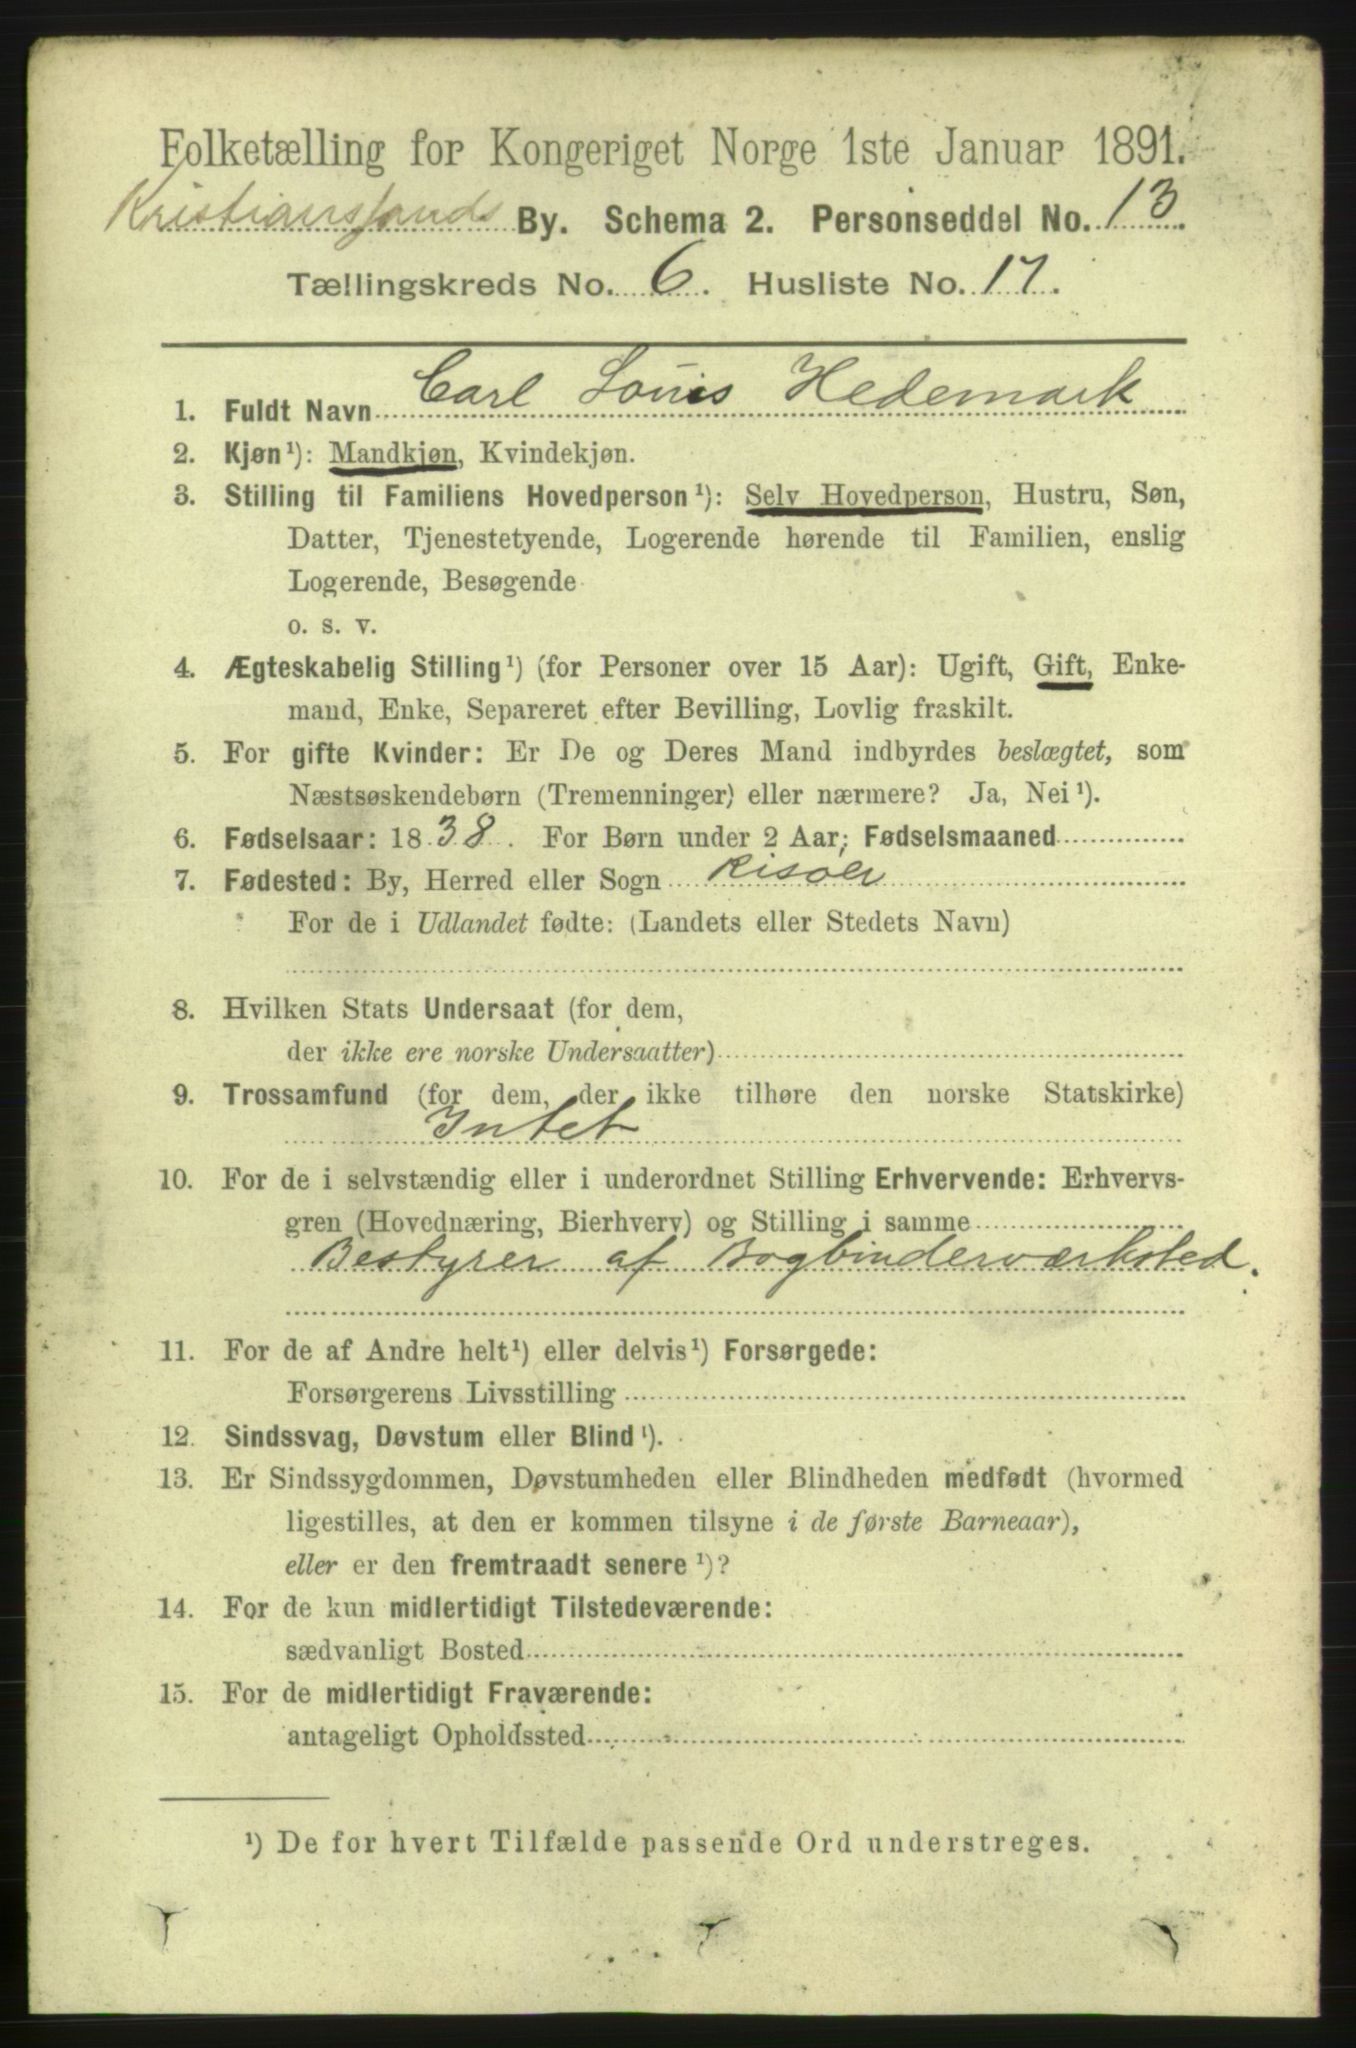 Folketælling for Kongeriget Norge 1ste Januar 1891.
Kristianssands By. Schema 2. Personseddel No. 13.
Tællingskreds No. 6. Husliste No. 17.
1. Fuldt Navn Carl Louis Hedemark
2. Kjøn¹): Mandkjøn, Kvindekjøn.
3. Stilling til Familiens Hovedperson¹): Selv Hovedperson, Hustru, Søn,
Datter, Tjenestetyende, Logerende hørende til Familien, enslig
Logerende, Besøgende
o. s. v.
4. Ægteskabelig Stilling¹) (for Personer over 15 Aar): Ugift, Gift, Enke-
mand, Enke, Separeret efter Bevilling, Lovlig fraskilt.
5. For gifte Kvinder: Er De og Deres Mand indbyrdes beslægtet, som
Næstsøskendebørn (Tremenninger) eller nærmere? Ja, Nei¹).
6. Fødselsaar: 1838. For Børn under 2 Aar: Fødselsmaaned
7. Fødested: By, Herred eller Sogn Risöer
For de i Udlandet fødte: (Landets eller Stedets Navn)
8. Hvilken Stats Undersaat (for dem,
der ikke ere norske Undersaatter)
9. Trossamfund (for dem, der ikke tilhøre den norske Statskirke)
Intet
10. For de i selvstændig eller i underordnet Stilling Erhvervende: Erhvervs-
gren (Hovednæring, Bierhverv) og Stilling i samme
Bestyrer af Bogbinderværksted.
11. For de af Andre helt¹) eller delvis¹) Forsørgede:
Forsørgerens Livsstilling
12. Sindssvag, Døvstum eller Blind¹).
13. Er Sindssygdommen, Døvstumheden eller Blindheden medfødt (hvormed
ligestilles, at den er kommen tilsyne i de første Barneaar),
eller er den fremtraadt senere¹)?
14. For de kun midlertidigt Tilstedeværende:
sædvanligt Bosted
15. For de midlertidigt Fraværende:
antageligt Opholdssted
¹) De for hvert Tilfælde passende Ord understreges.